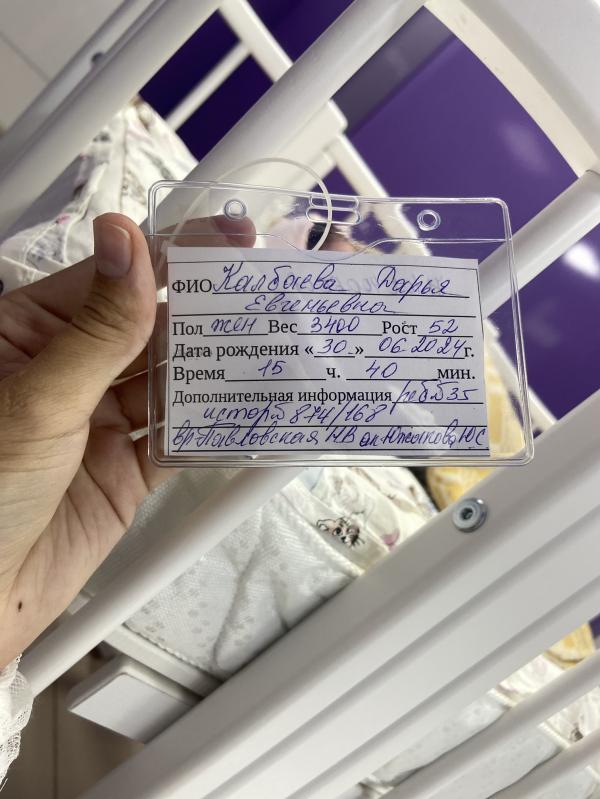 ФИО Калбаева Дарья
Евгеньевна
Пол жен Вес 3400 Рост 52
Дата рождения «30» 06.2024г.
Время 15 ч. 40 мин.
Дополнительная информация
истор 874/168
вр. Павловская НВ ак. Южакова ЮС